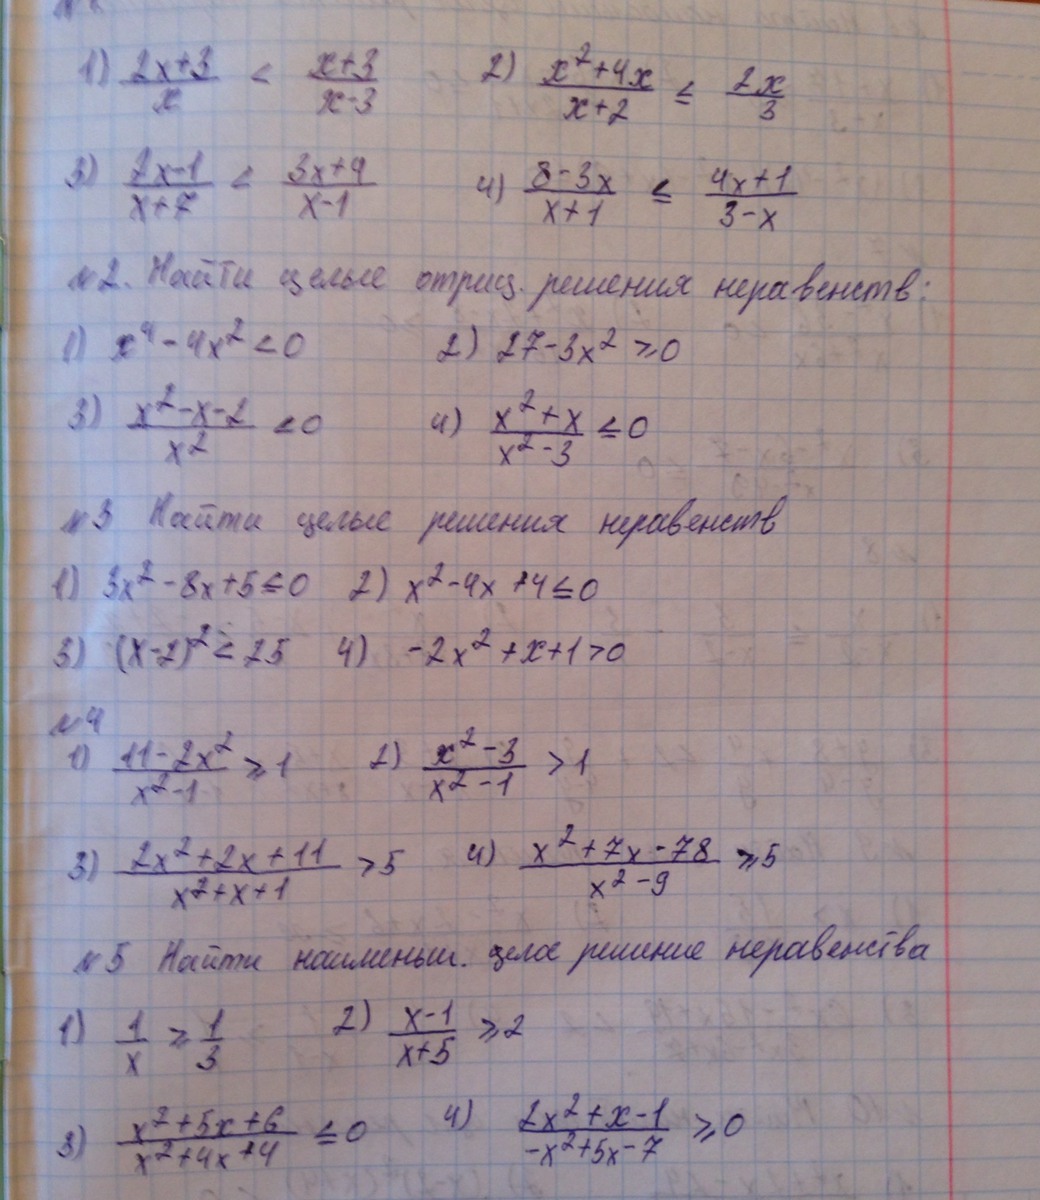 1) (2x+3)/x < (x+3)/(x-3)  2) (x²+4x)/(x+2) ≤ 2x/3
3) (2x-1)/(x+7) < (3x+4)/(x-1)  4) (8-3x)/(x+1) ≤ (4x+1)/(3-x)
№2. Найти целые отриц. решения неравенств:
1) x⁴-4x²<0  2) 27-3x²⩾0
3) (x²-x-2)/x² <0  4) (x²+x)/(x²-3) ≤0
№3 Найти целые решения неравенств
1) 3x²-8x+5≤0  2) x²-4x+4≤0
3) (x-2)²<25  4) -2x²+x+1>0
№4
1) (11-2x²)/(x²-1) ⩾1  2) (x²-3)/(x²-1) >1
3) (2x²+2x+11)/(x²+x+1) >5  4) (x²+7x-78)/(x²-9) ⩾5
№5 Найти наименьш. целое решение неравенства
1) 1/x ⩾ 1/3  2) (x-1)/(x+5) ⩾2
3) (x²+5x+6)/(x²+4x+4) ≤0  4) (2x²+x-1)/(-x²+5x-7) ⩾0